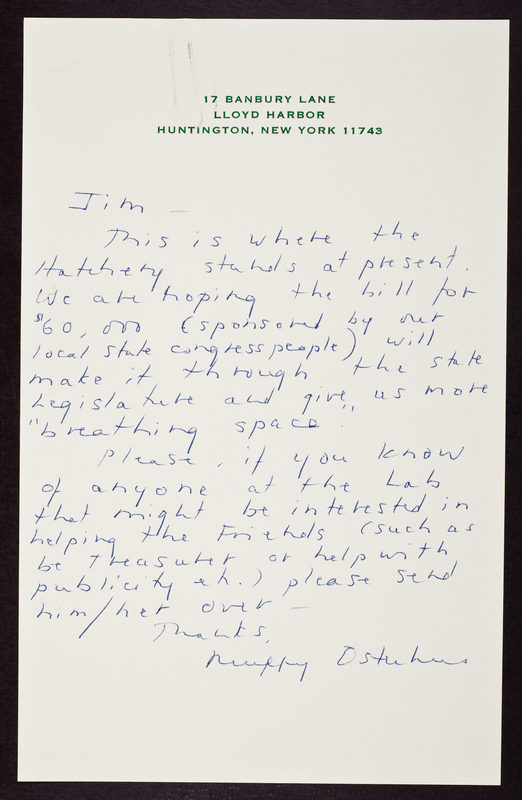 17 BANBURY LANE
LLOYD HARBOR
HUNTINGTON, NEW YORK 11743
Jim —
This is where the
Hatchery stands at present.
We are hoping the bill for
$60,000 (sponsored by our
local state congresspeople) will
make it through the state
Legislature and give us more
"breathing space".
Please, if you know
of anyone at the Lab
that might be interested in
helping the Friends (such as
be Treasurer or help with
publicity etc.) please send
him/her over —
Thanks,
Muffy